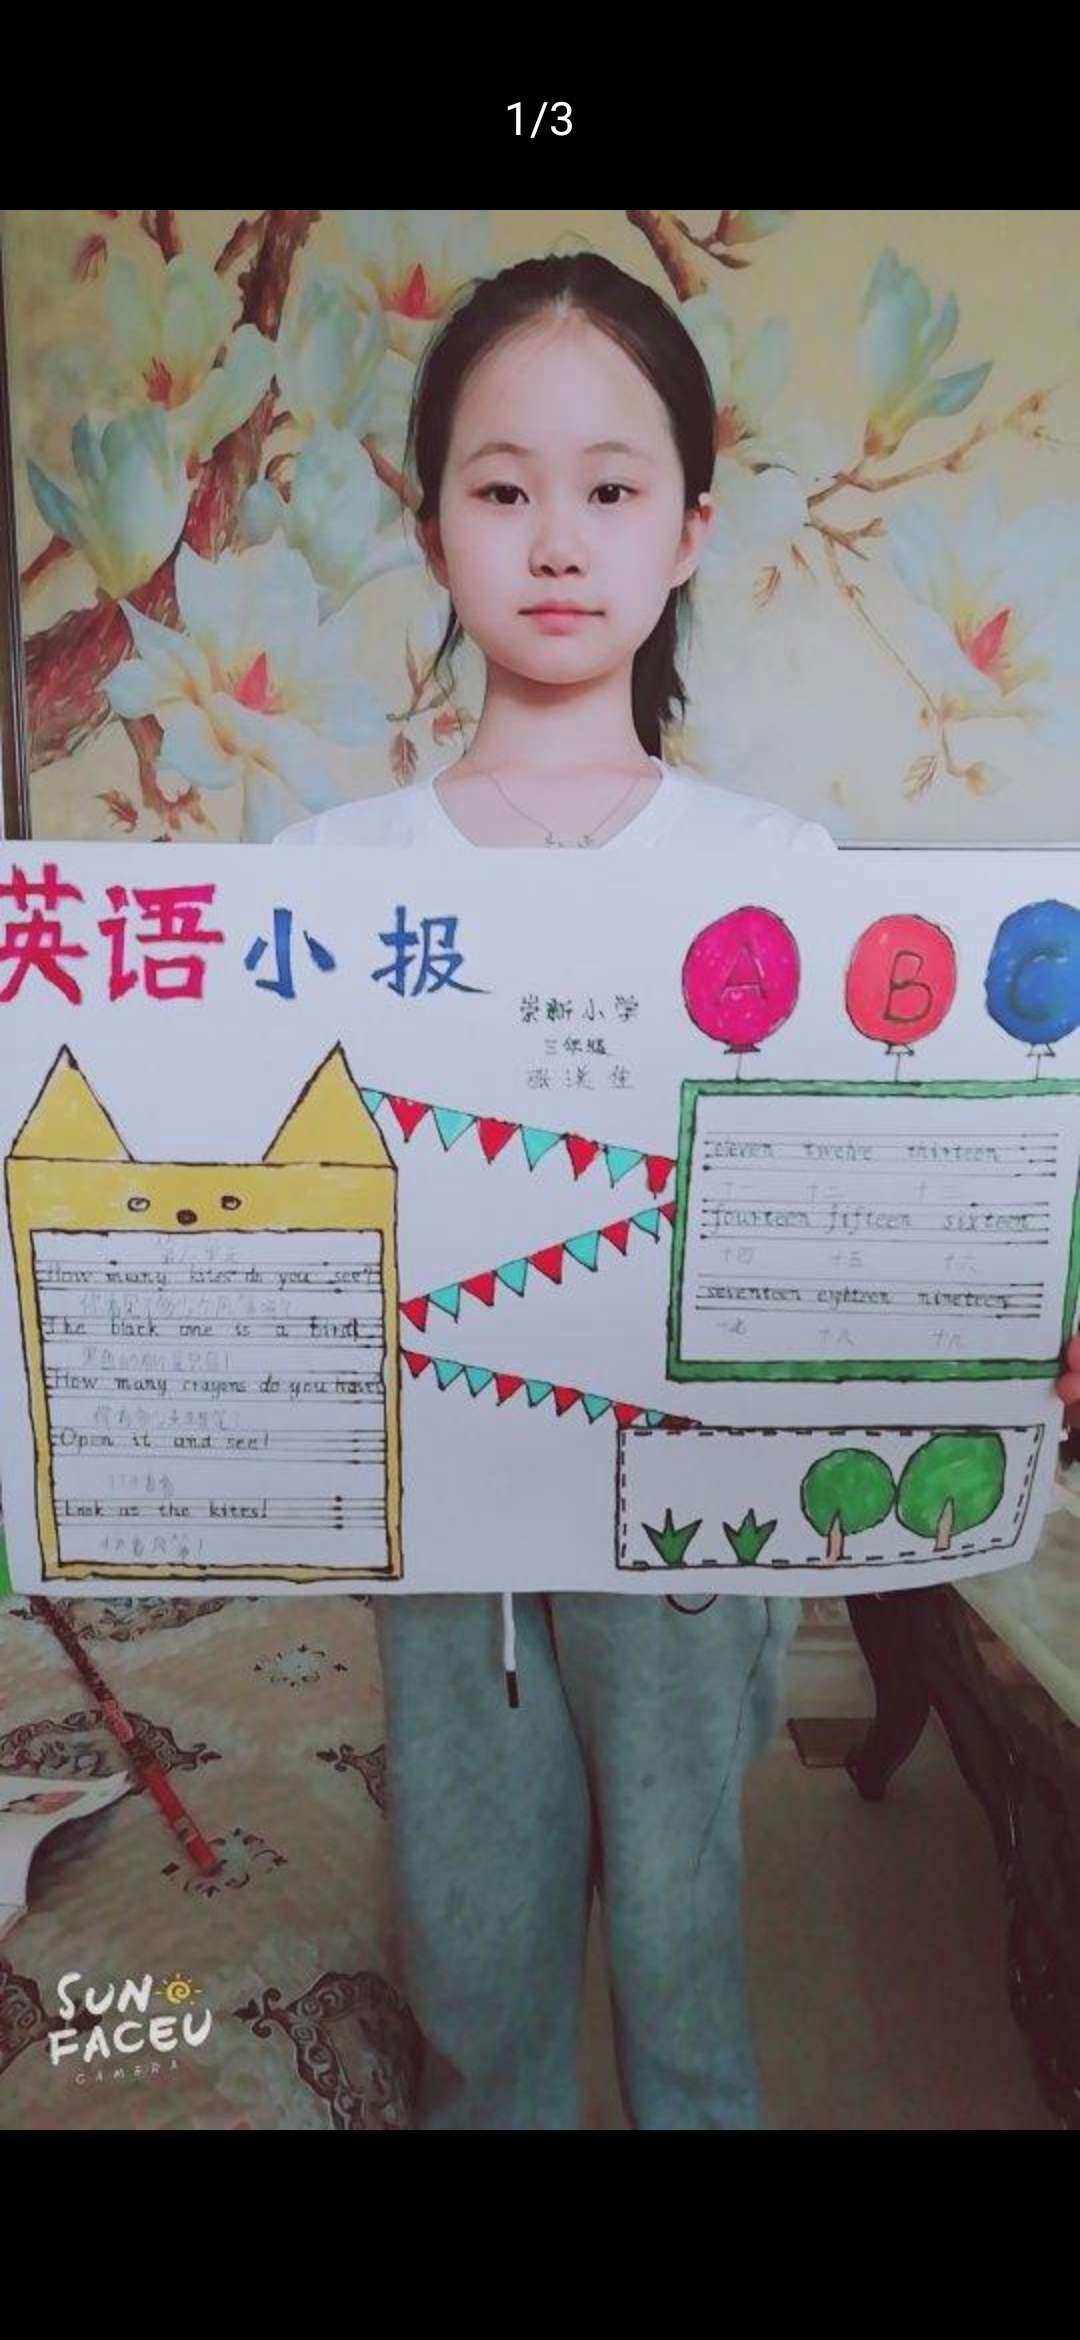 1/3
英语小报
崇新小学
三年级
A B C
eleven twelve thirteen
十一 十二 十三
fourteen fifteen sixteen
十四 十五 十六
seventeen eighteen nineteen
十七 十八 十九
How many kites do you see?
The black one is a bird!
How many crayons do you have?
Open it and see!
打开看看
Look at the kites!
SUN
FACEU
CAMERA